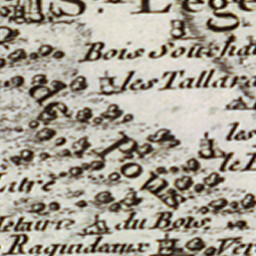 S. Lege
Bois Souchai
les Tallar
de
Pons
les
le
Mitre
Metairie du Bois
Raquideaux Ver